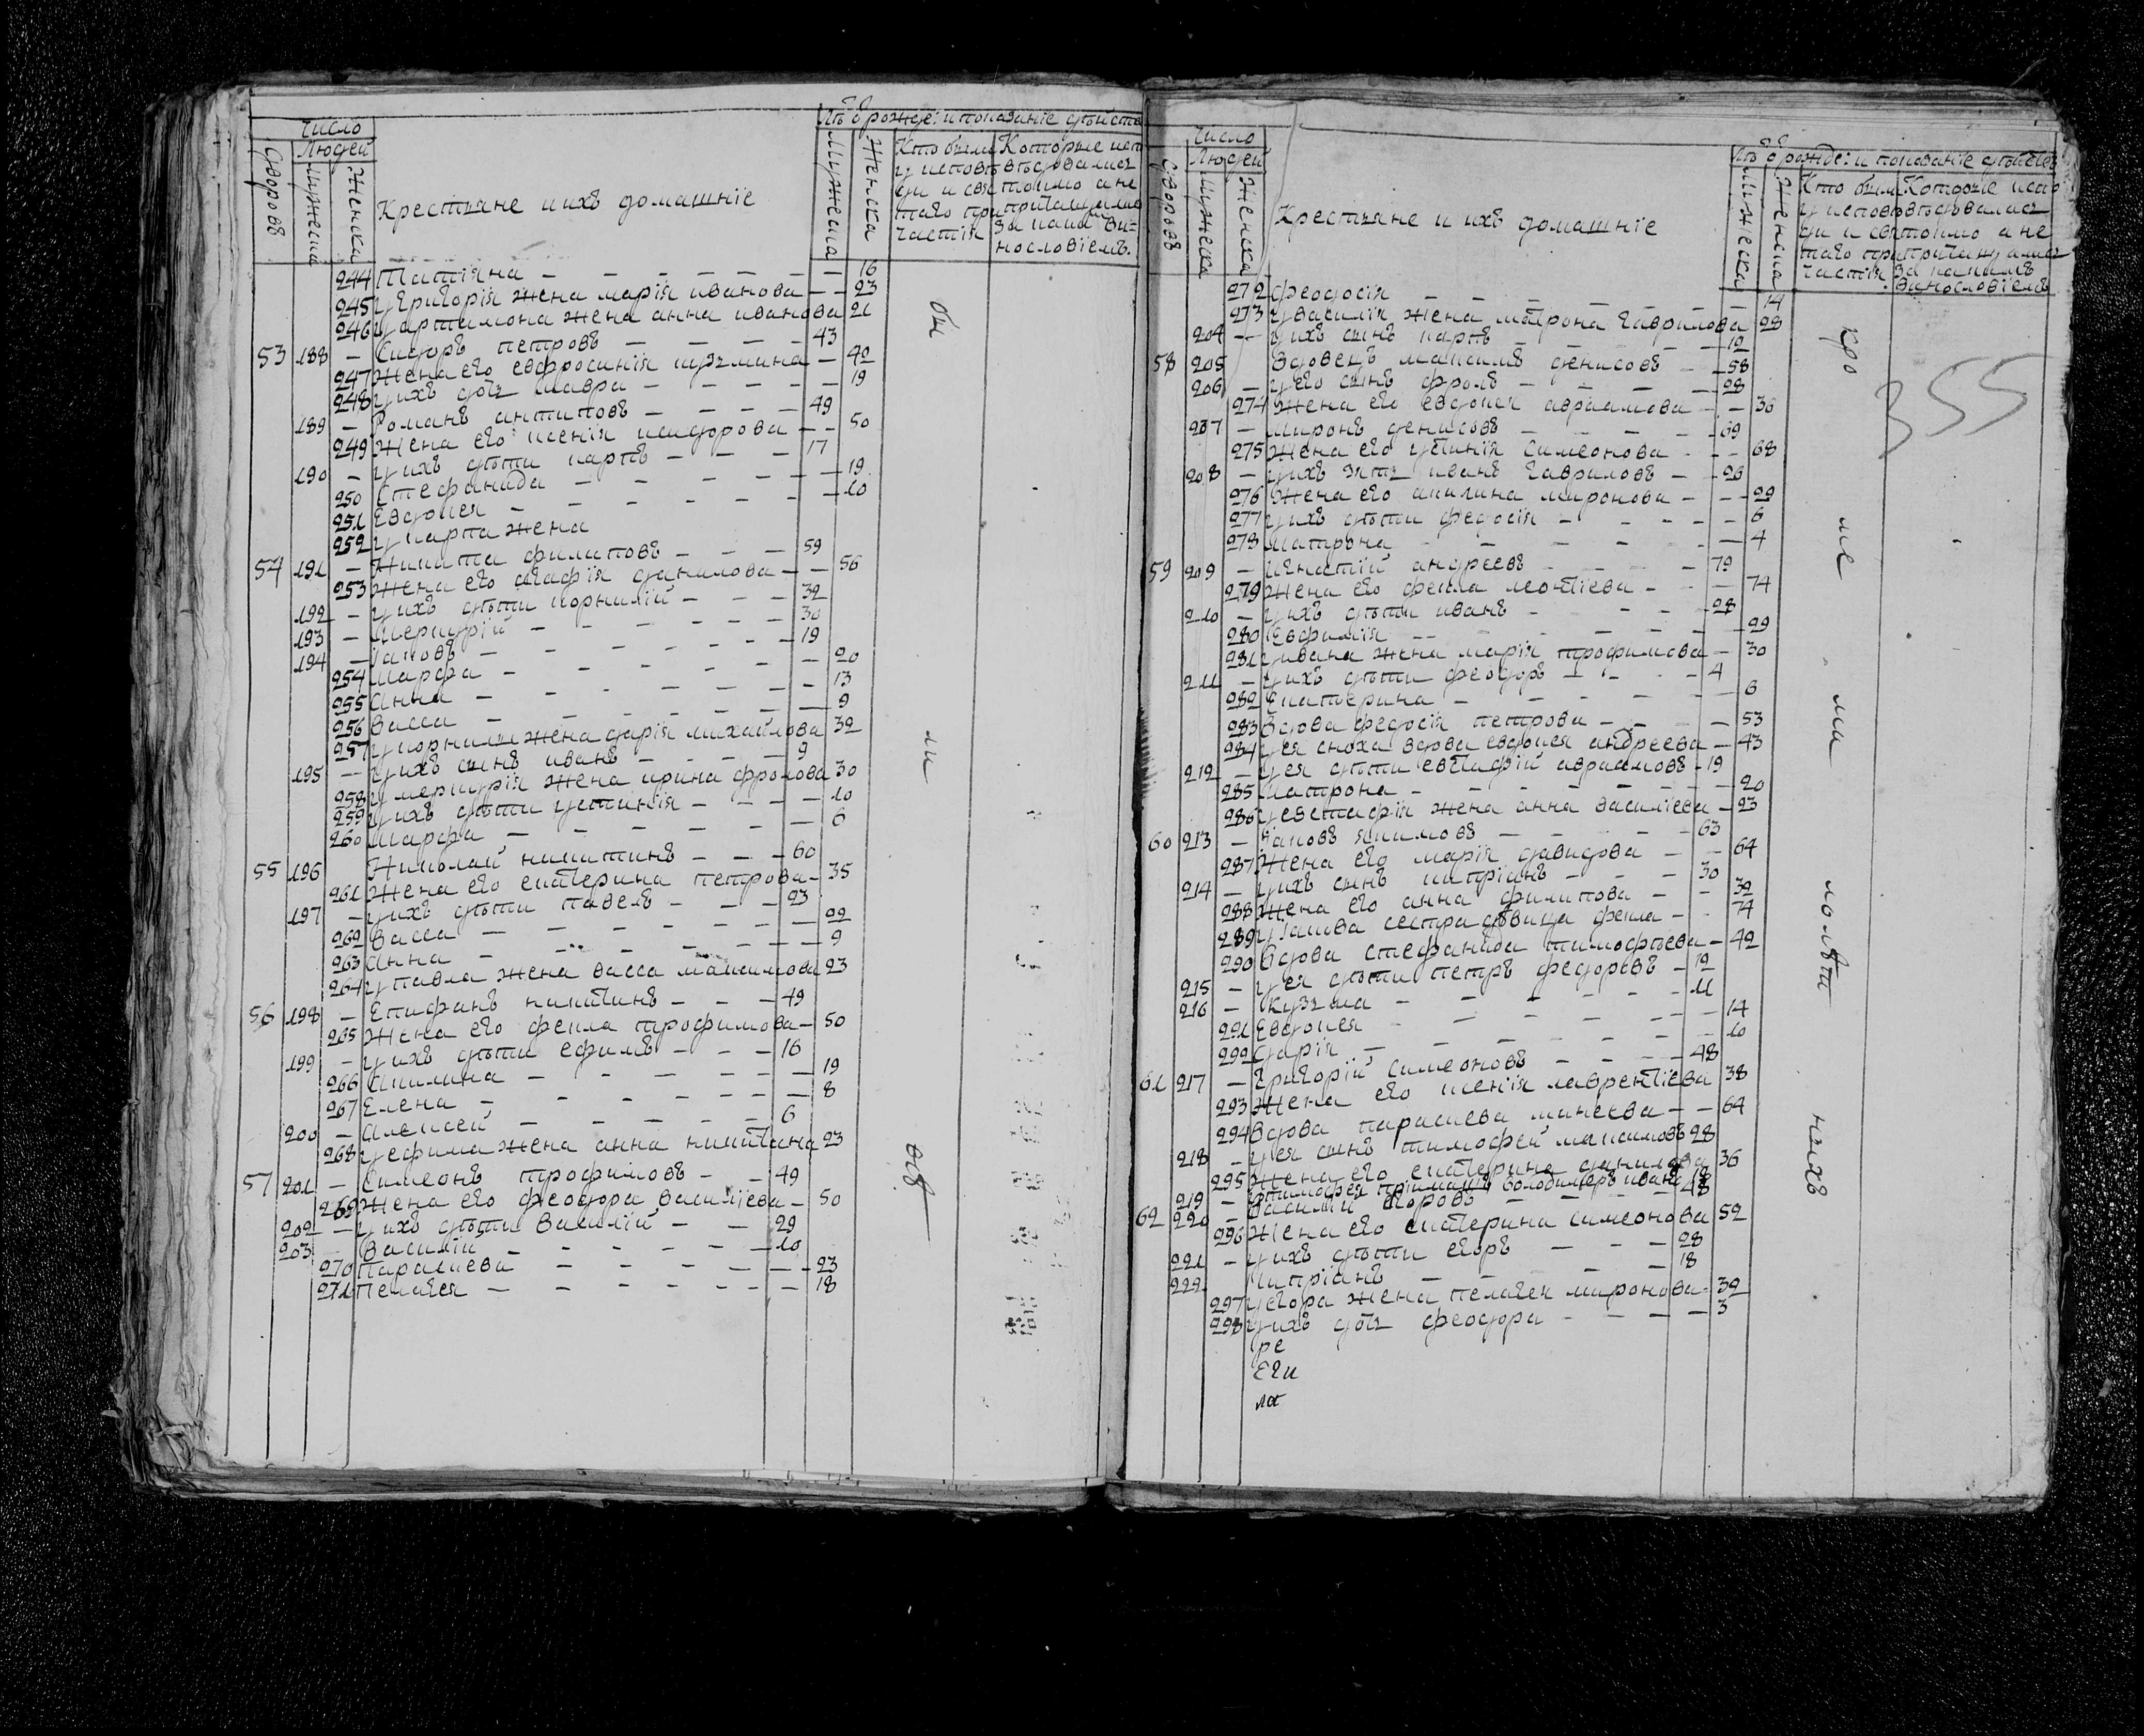 Число
Людей
Дворовъ
Мужеска
Женска
Крестьяне и ихъ домашніе
Мужеска
Женска
Кто были Которые исп
у исповѣ вѣдовались
ди и свя токмо а не
таго при причащались
частія за каким ви-
нословіемъ.
244 Татіяна — 16
245 у григорія жена марія иванова — 23
246 у артамона жена анна иванова 21
53 188 — Сидоръ петровъ — 43
247 Жена его евфросинія кузмина — 42
248 у ихъ дочь мавра — 19
189 — Романъ антиповъ — 49
249 Жена его ксенія исидорова — 50
190 — у ихъ дѣти карпъ — 17
250 Стефанида — 19
251 Евдокея — 10
252 у карпа жена
54 191 — Никита филиповъ — 59
253 Жена его агафія данилова — 56
192 — у ихъ дѣти корнилій — 32
193 — Меркурій — 30
194 — Іаковъ — 19
254 Марфа — 20
255 Анна — 13
256 Васса — 9
257 у корнилы жена дарія михайлова 32
195 — у ихъ сынъ иванъ — 9
258 у меркурія жена ирина фролова 30
259 у ихъ дѣти устинія — 10
260 Марфа — 6
55 196 Николай никитинъ — 60
261 Жена его екатерина петрова — 35
197 — у ихъ дѣти павелъ — 23
262 Васса — 22
263 Анна — 9
264 у павла жена васса максимова 23
56 198 — Епифанъ никитинъ — 49
265 Жена его фекла трофимова — 50
199 — у ихъ дѣти ефимъ — 16
266 Акилина — 19
267 Елена — 8
200 — Алексей — 6
268 у ефима жена анна никитина 23
57 201 — Симеонъ трофимовъ — 49
269 Жена его феодора василіева — 50
202 — у ихъ дѣти Василій — 29
203 Василій — 10
270 Параскева — 23
271 Пелагея — 18
бы
ли
всѣ
Число
Людей
Дворовъ
Мужеска
Женска
Крестьяне и ихъ домашніе
Мужеска
Женска
Кто были Которые испо
у исповѣ вѣдовались
ди и свя токмо а не
таго при причащались
частія за какимъ
винословіемъ
355
272 феодосія — 14
273 у василія жена матрона гаврилова 28
204 — у ихъ сынъ карпъ — 12
58 205 Вдовецъ максимъ денисовъ — 58
206 — у его сынъ фролъ — 28
274 Жена его евдокея авраамова — 36
207 — миронъ денисовъ — 69
275 Жена его устинія симеонова — 68
208 — у ихъ зять иванъ гавриловъ — 26
276 Жена его акилина миронова — 29
277 у ихъ дѣти федосія — 6
278 Матрона — 4
59 209 — Игнатій андреевъ — 79
279 Жена его фекла леонтіева — 74
210 — у ихъ дѣти иванъ — 28
280 Евфимія — 29
281 у ивана жена марія трофимова — 30
211 — у ихъ дѣти феодоръ — 4
282 Екатерина — 6
283 Вдова федосія петрова — 53
284 у ея сноха вдова евдокея андреева — 43
212 — у ея дѣти евстафій авраамовъ — 19
285 матрона — 20
286 у евстафія жена анна василіева — 23
60 213 — Іаковъ якимовъ — 63
287 Жена его марія давидова — 64
214 — у ихъ сынъ кипріанъ — 30
288 Жена его анна филипова — 32
289 у іакова сестра дѣвица фекла — 74
290 Вдова стефанида тимофѣева — 42
215 — у ея дѣти петръ федоровъ — 12
216 — Кузма — 11
291 Евдокея — 14
292 Дарія — 10
61 217 — Григорій симеоновъ — 48
293 Жена его ксенія лаврентіева 38
294 Вдова параскева минеева — 64
218 — у ея сынъ тимофей максимовъ 28
295 Жена его екатерина данилова 36
219 — у тимофея приймакъ володимеръ ивановъ 18
62 220 — Василій Егоровъ — 48
296 Жена его екатерина симеонова 52
221 — у ихъ дѣти егоръ — 28
222 Кипріанъ — 18
297 у егора жена пелагея миронова — 32
298 у ихъ дочь феодора — 3
ре
Еги
ла
кро
ме
ма
лолѣт
нихъ